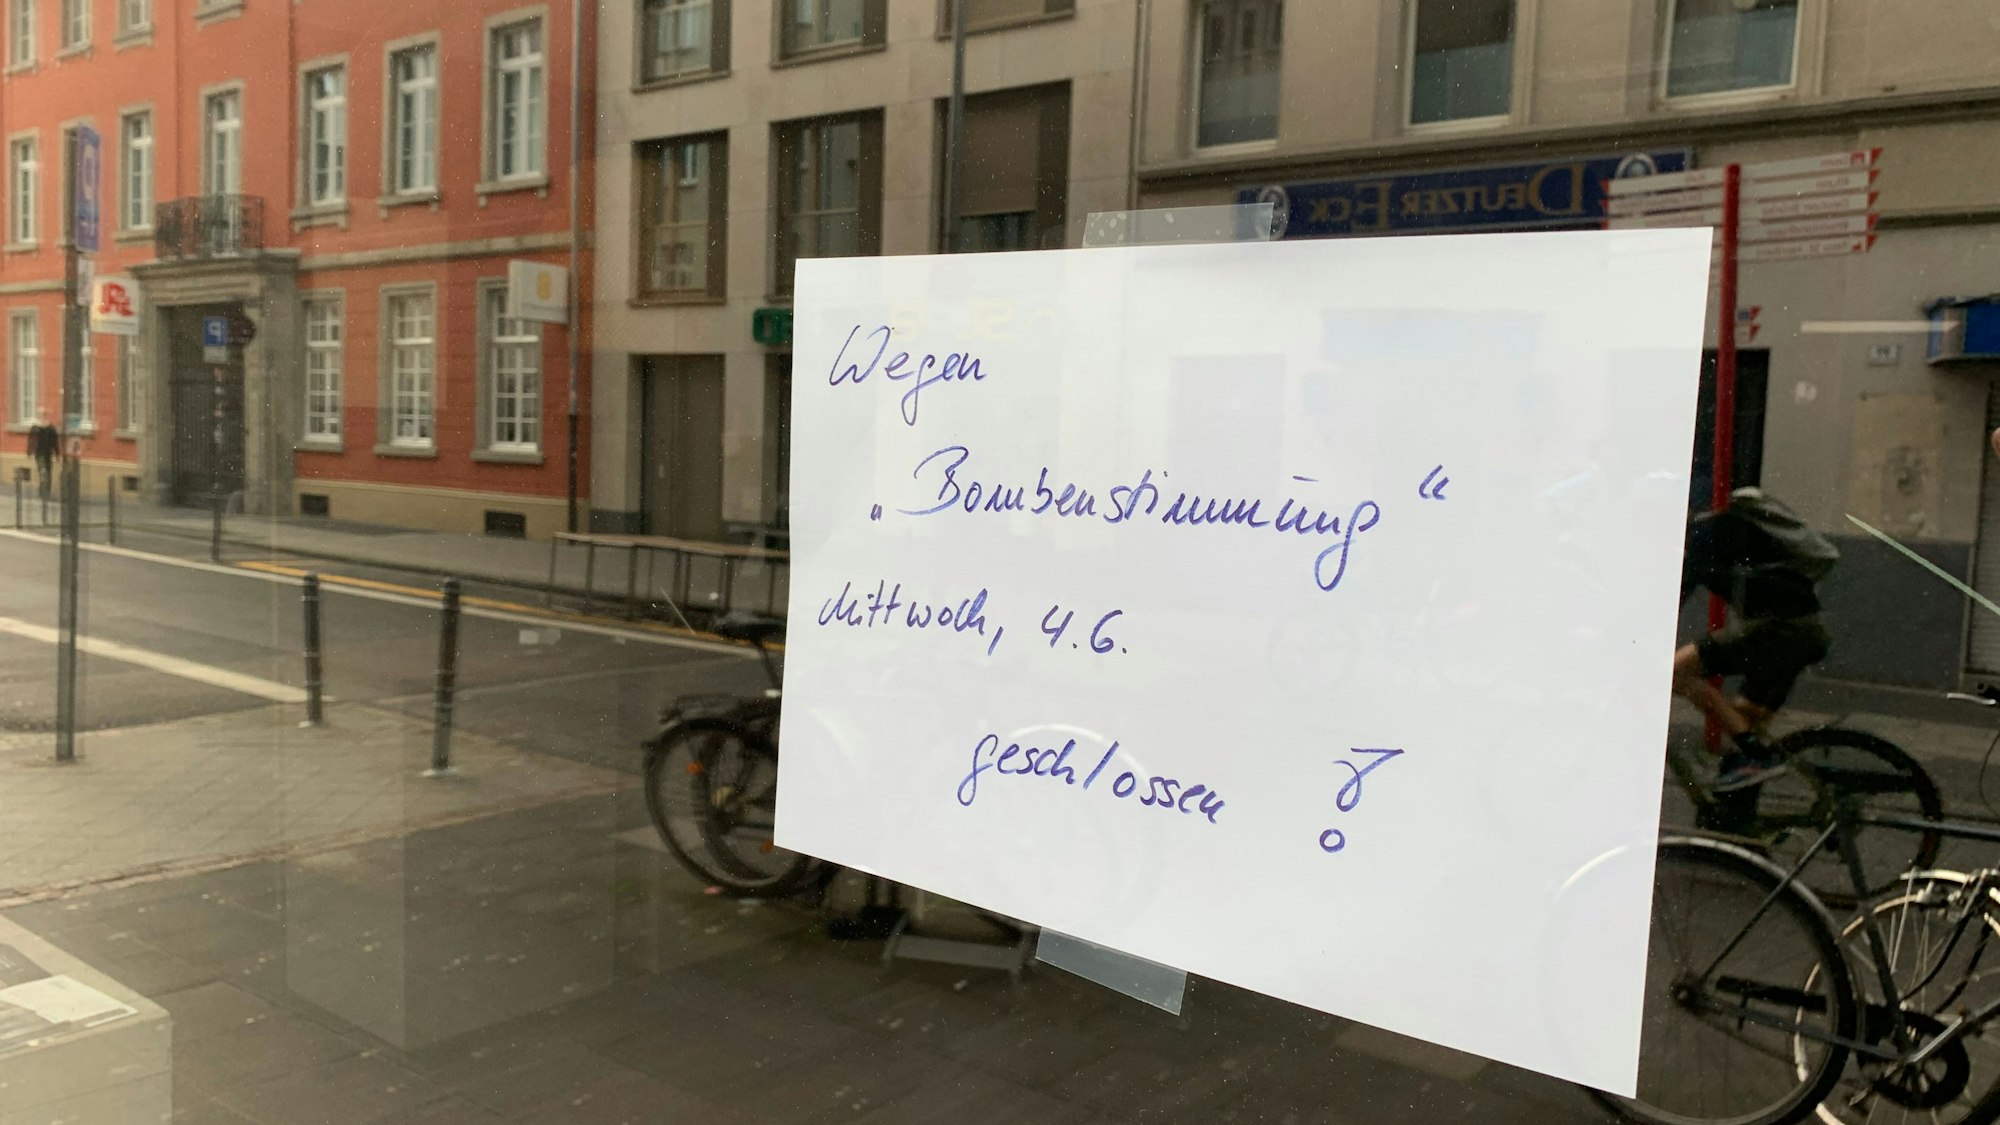 DEUTZER ECK
Wegen
„Bombenstimmung“
Mittwoch, 4.6.
geschlossen !